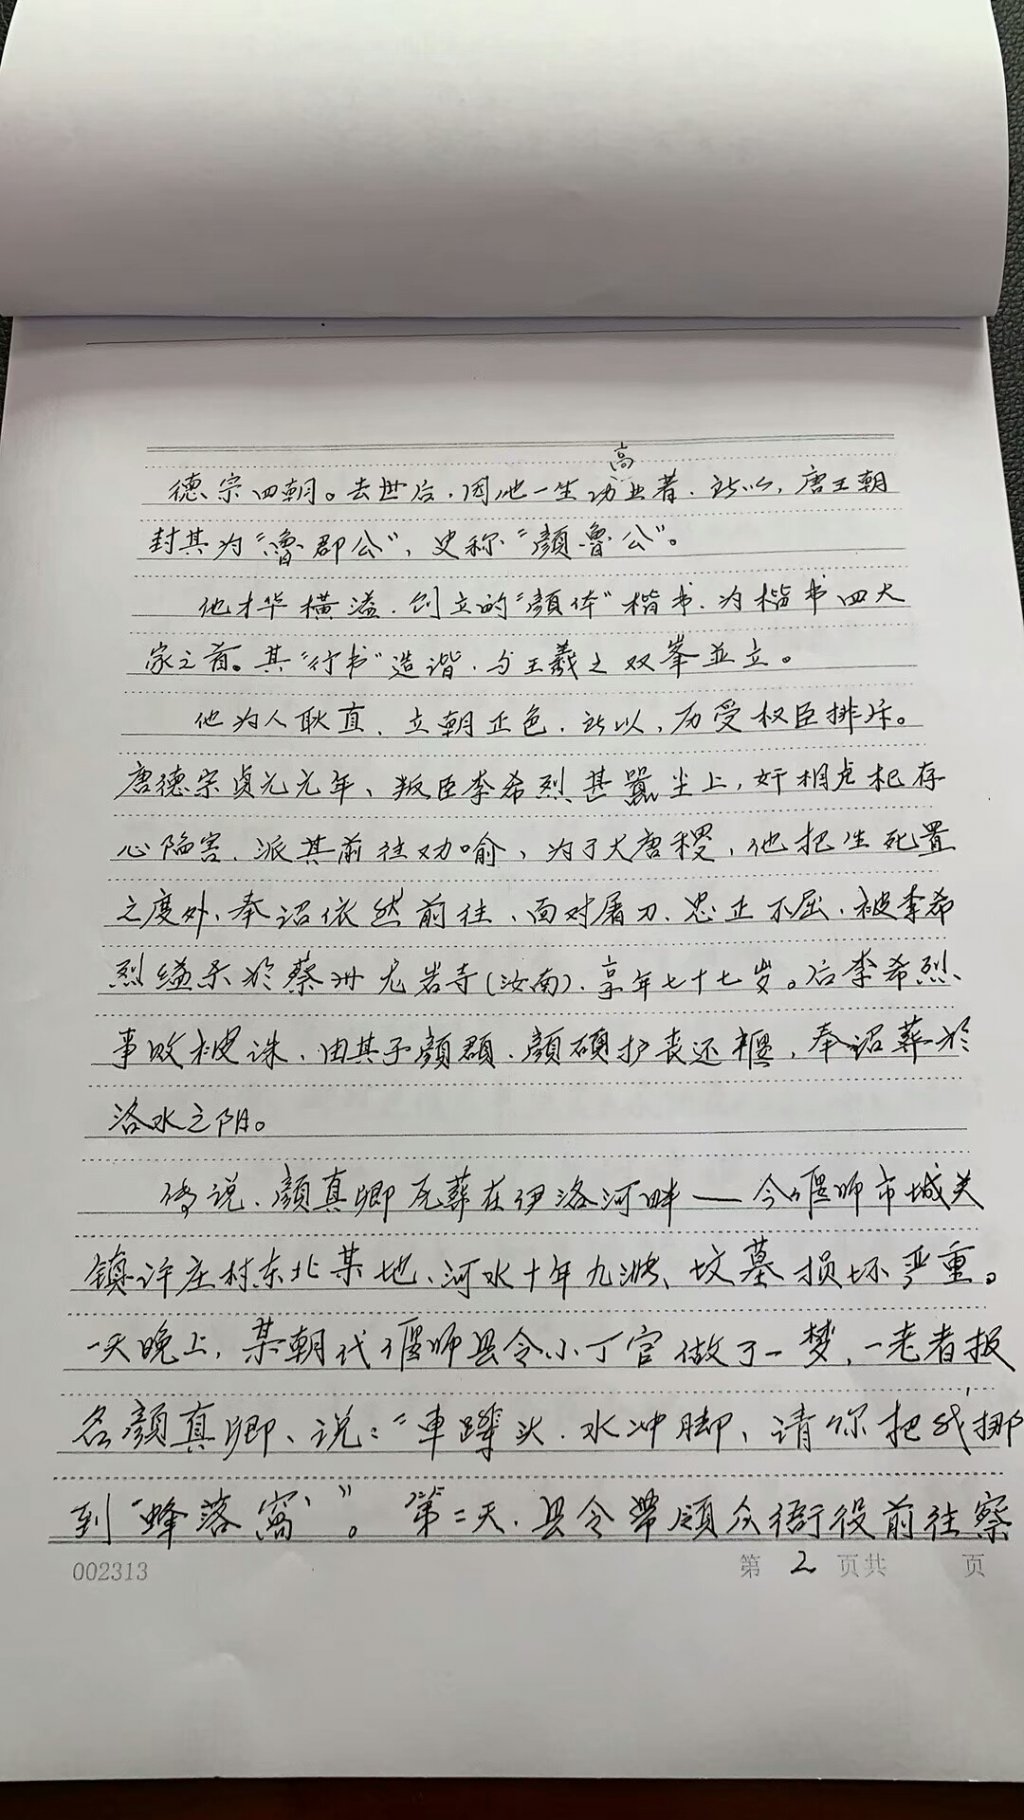 德宗四朝。去世后,因他一生功高业著,所以,唐王朝
封其为“鲁郡公”,史称“颜鲁公”。
他才华横溢,创立的“颜体”楷书,为楷书四大
家之首。其“行书”造谐,与王羲之双峯並立。
他为人耿直、立朝正色,所以,历受权臣排斥。
唐德宗贞元元年、叛臣李希烈甚嚣尘上,奸相卢杞存
心陷害,派其前往劝喻,为了大唐稷,他把生死置
之度外,奉诏依然前往,面对屠刀,忠正不屈,被李希
烈缢杀於蔡州龙岩寺(汝南),享年七十七岁。后李希烈、
事败被诛,由其子颜頵、颜硕护丧还櫬,奉诏葬於
洛水之阴。
传说,颜真卿死葬在伊洛河畔——今偃师市城关
镇许庄村东北某地,河水十年九涨、坟墓损坏严重。
一天晚上,某朝代偃师县令小丁官做了一梦,一老者报
名颜真卿、说:“車蹕头,水冲脚,请你把我挪
到“蜂落窝””。第二天,县令带领众衙役前往察
002313
第 2 页共 页